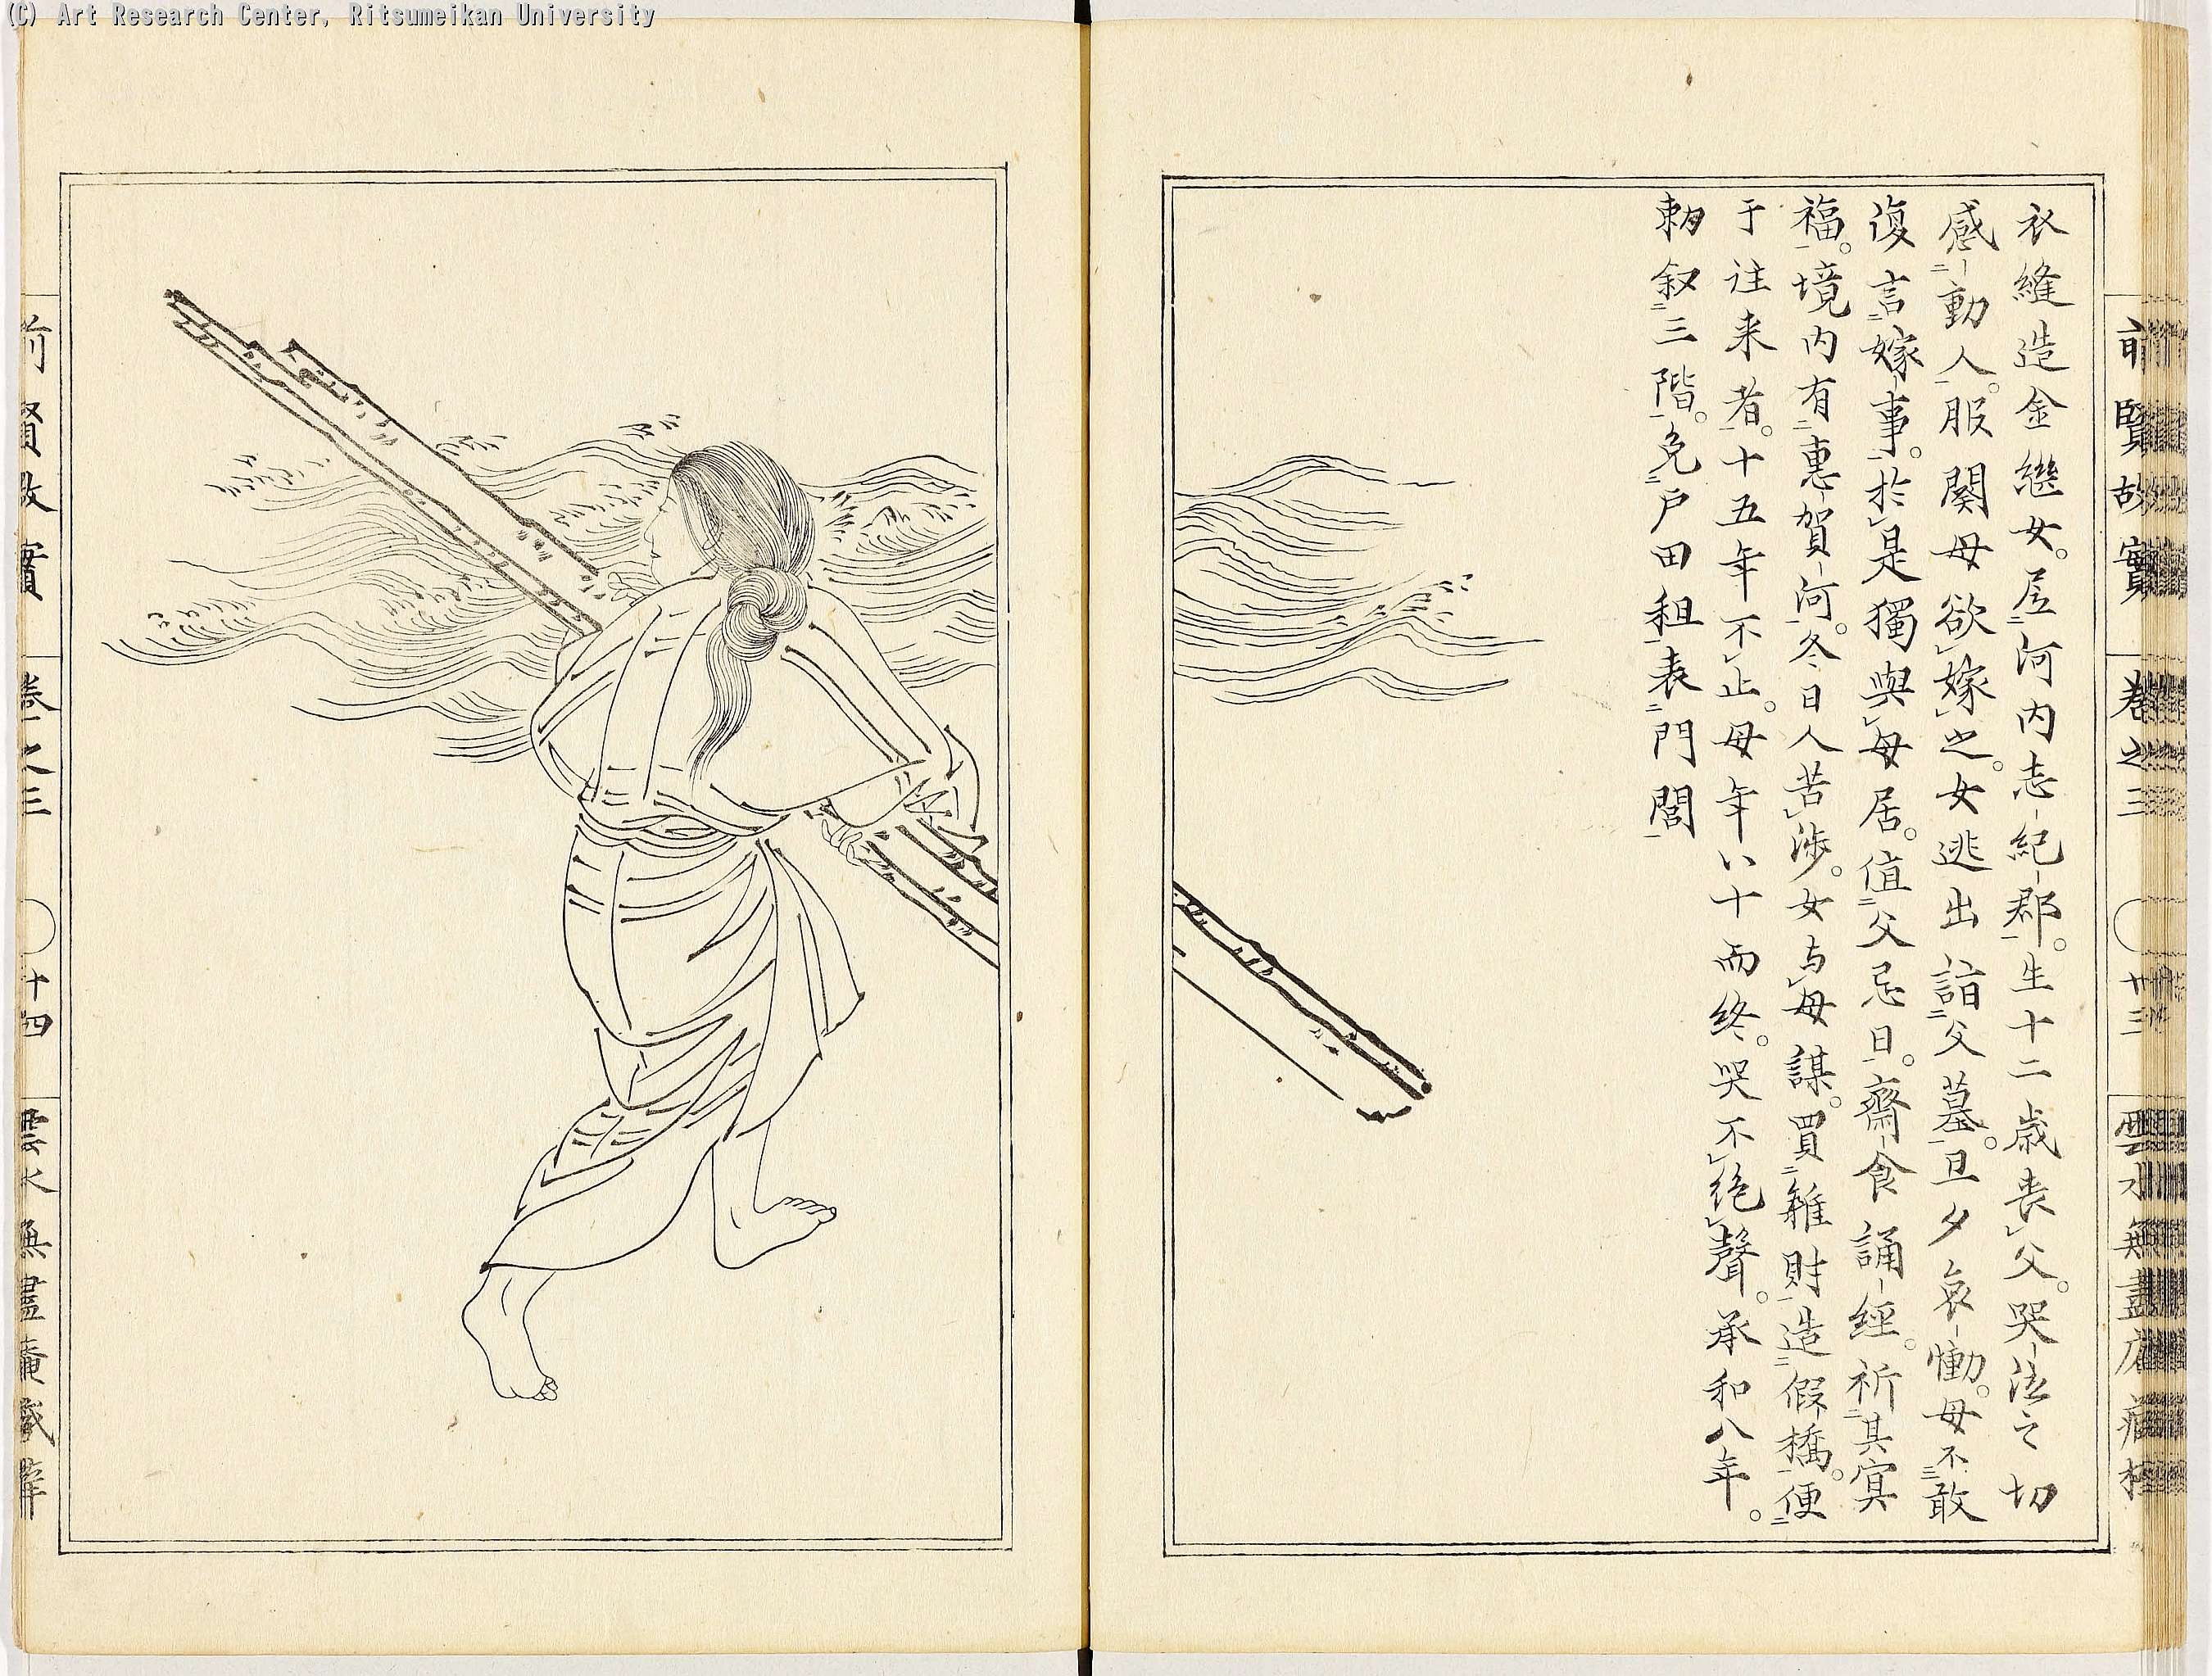 (C) Art Research Center, Ritsumeikan University
前賢故實 卷之三 十三
衣縫造金繼女。居河内志紀郡。生十二歳喪父。哭泣之切
感動人。服闋母欲嫁之。女逃出詣父墓。旦夕哀慟。母不敢
復言嫁事。於是獨與母居。值父忌日。齋食誦經。祈其冥
福。境内有惠賀河。冬日人苦渉。女与母謀。買雜財造假橋。便
于往来者。十五年不止。母年八十而終。哭不絶聲。承和八年。
勅叙三階。免戸田租表門閭
前賢故實 卷之三 十四 雲水無盡庵藏